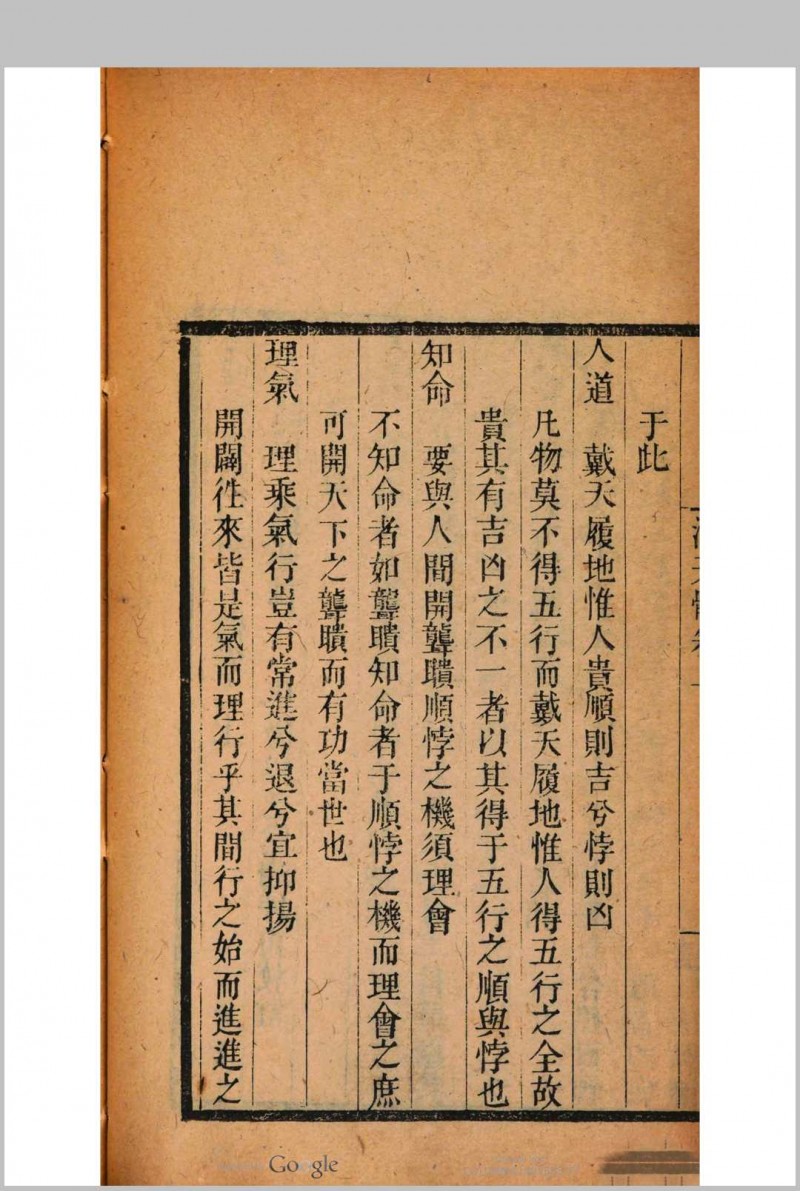 于此
人道　戴天履地惟人貴順則吉兮悖則凶
凡物莫不得五行而戴天履地惟人得五行之全故
貴其有吉凶之不一者以其得于五行之順與悖也
知命　要與人間開聾聵順悖之機須理會
不知命者如聾聵知命者于順悖之機而理會之庶
可開天下之聾聵而有功當世也
理氣　理乘氣行豈有常進兮退兮宜抑揚
開闔徃來皆是氣而理行乎其間行之始而進進之
Google